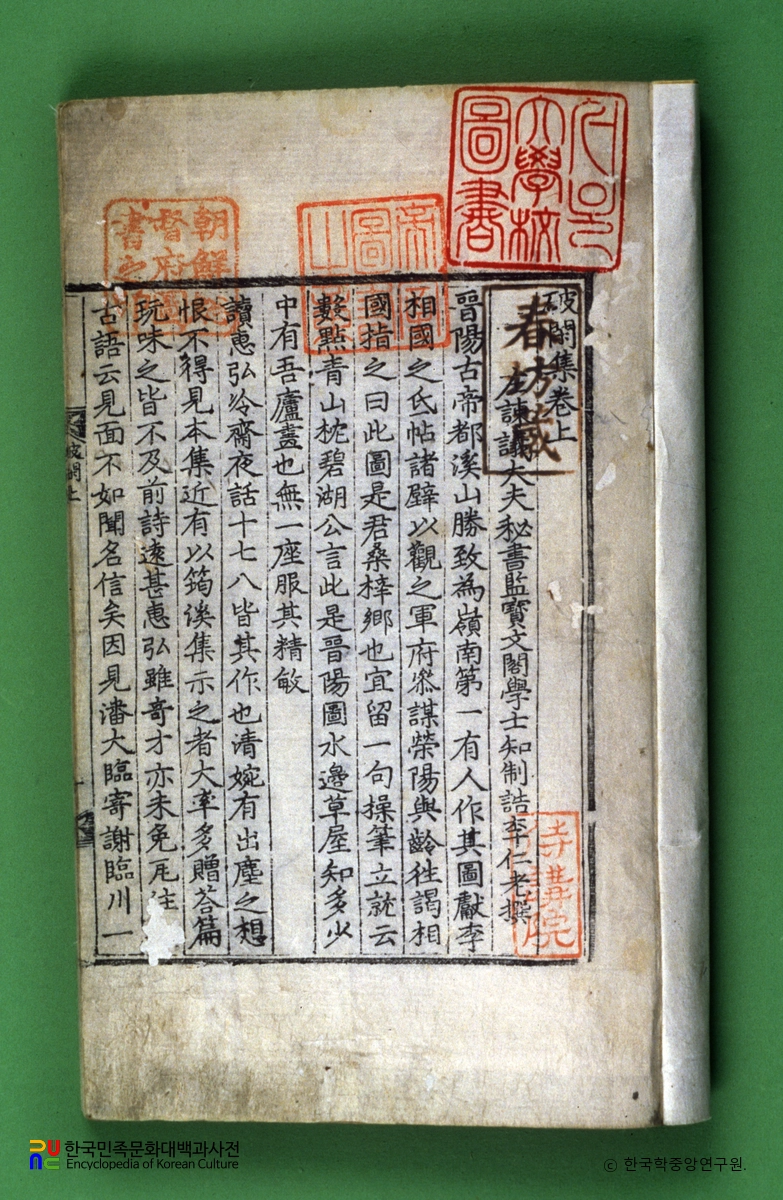 破閑集卷上
左諫議大夫秘書監寶文閣學士知制誥李仁老撰
晉陽古帝都溪山勝致為嶺南第一有人作其圖獻李
相國之氐帖諸壁以觀之軍府叅謀榮陽與齡徃謁相
國指之曰此圖是君桑梓鄉也宜留一句操筆立就云
數點青山枕碧湖公言此是晉陽圖水邊草屋知多少
中有吾廬畫也無一座服其精敏
讀惠弘冷齋夜話十七八皆其作也清婉有出塵之想
恨不得見本集近有以筠溪集示之者大率多贈荅篇
玩味之皆不及前詩遠甚惠弘雖奇才亦未免瓦注
古語云見面不如聞名信矣因見潘大臨寄謝臨川一
破閑上
春坊藏
서울
大學校
圖書
帝室
圖書
朝鮮
督府
書之
侍講院
한국민족문화대백과사전
Encyclopedia of Korean Culture
© 한국학중앙연구원.